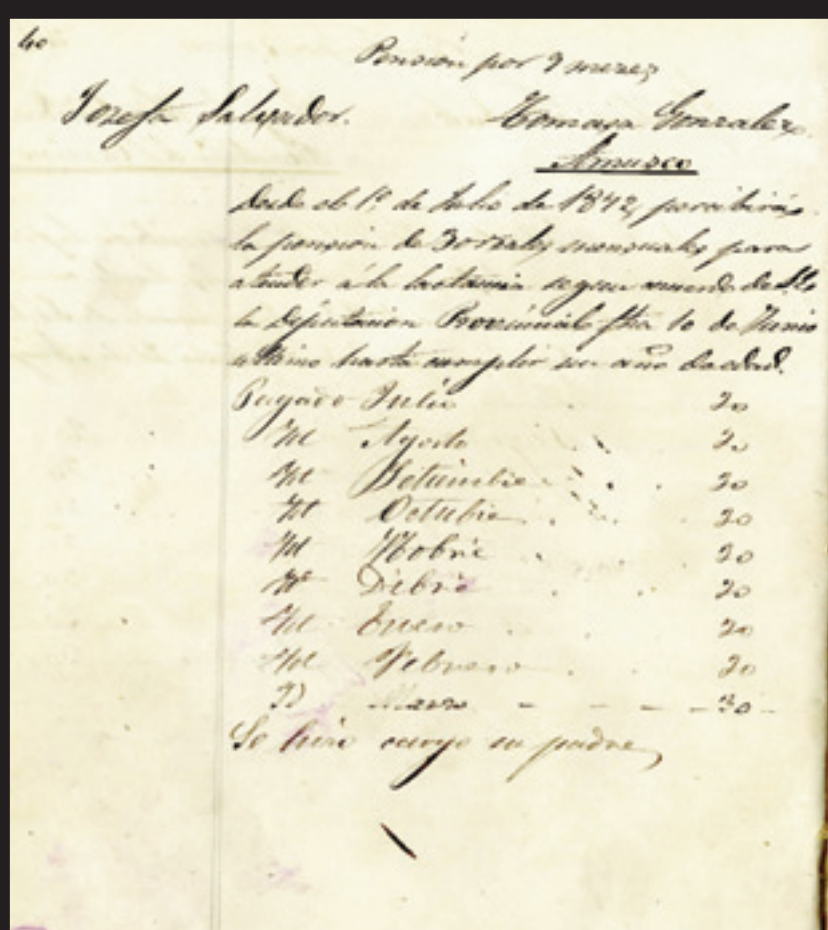 40
Pension por 9 meses
Josefa Salvador. Tomasa Gonzalez.
Amusco
Desde el 1º de Julio de 1842, percibirá
la pension de 30 reales mensuales para
atender á la lactancia segun acuerdo de
la Diputacion Provincial fha 10 de Junio
ultimo hasta cumplir un año de edad.
Pagado Julio 30
Id Agosto 30
Id Setiembre 30
Id Octubre 30
Id Nobre 30
Id Dibre 30
Id Enero 30
Id Febrero 30
Id Marzo 30
Se hizo cargo su padre